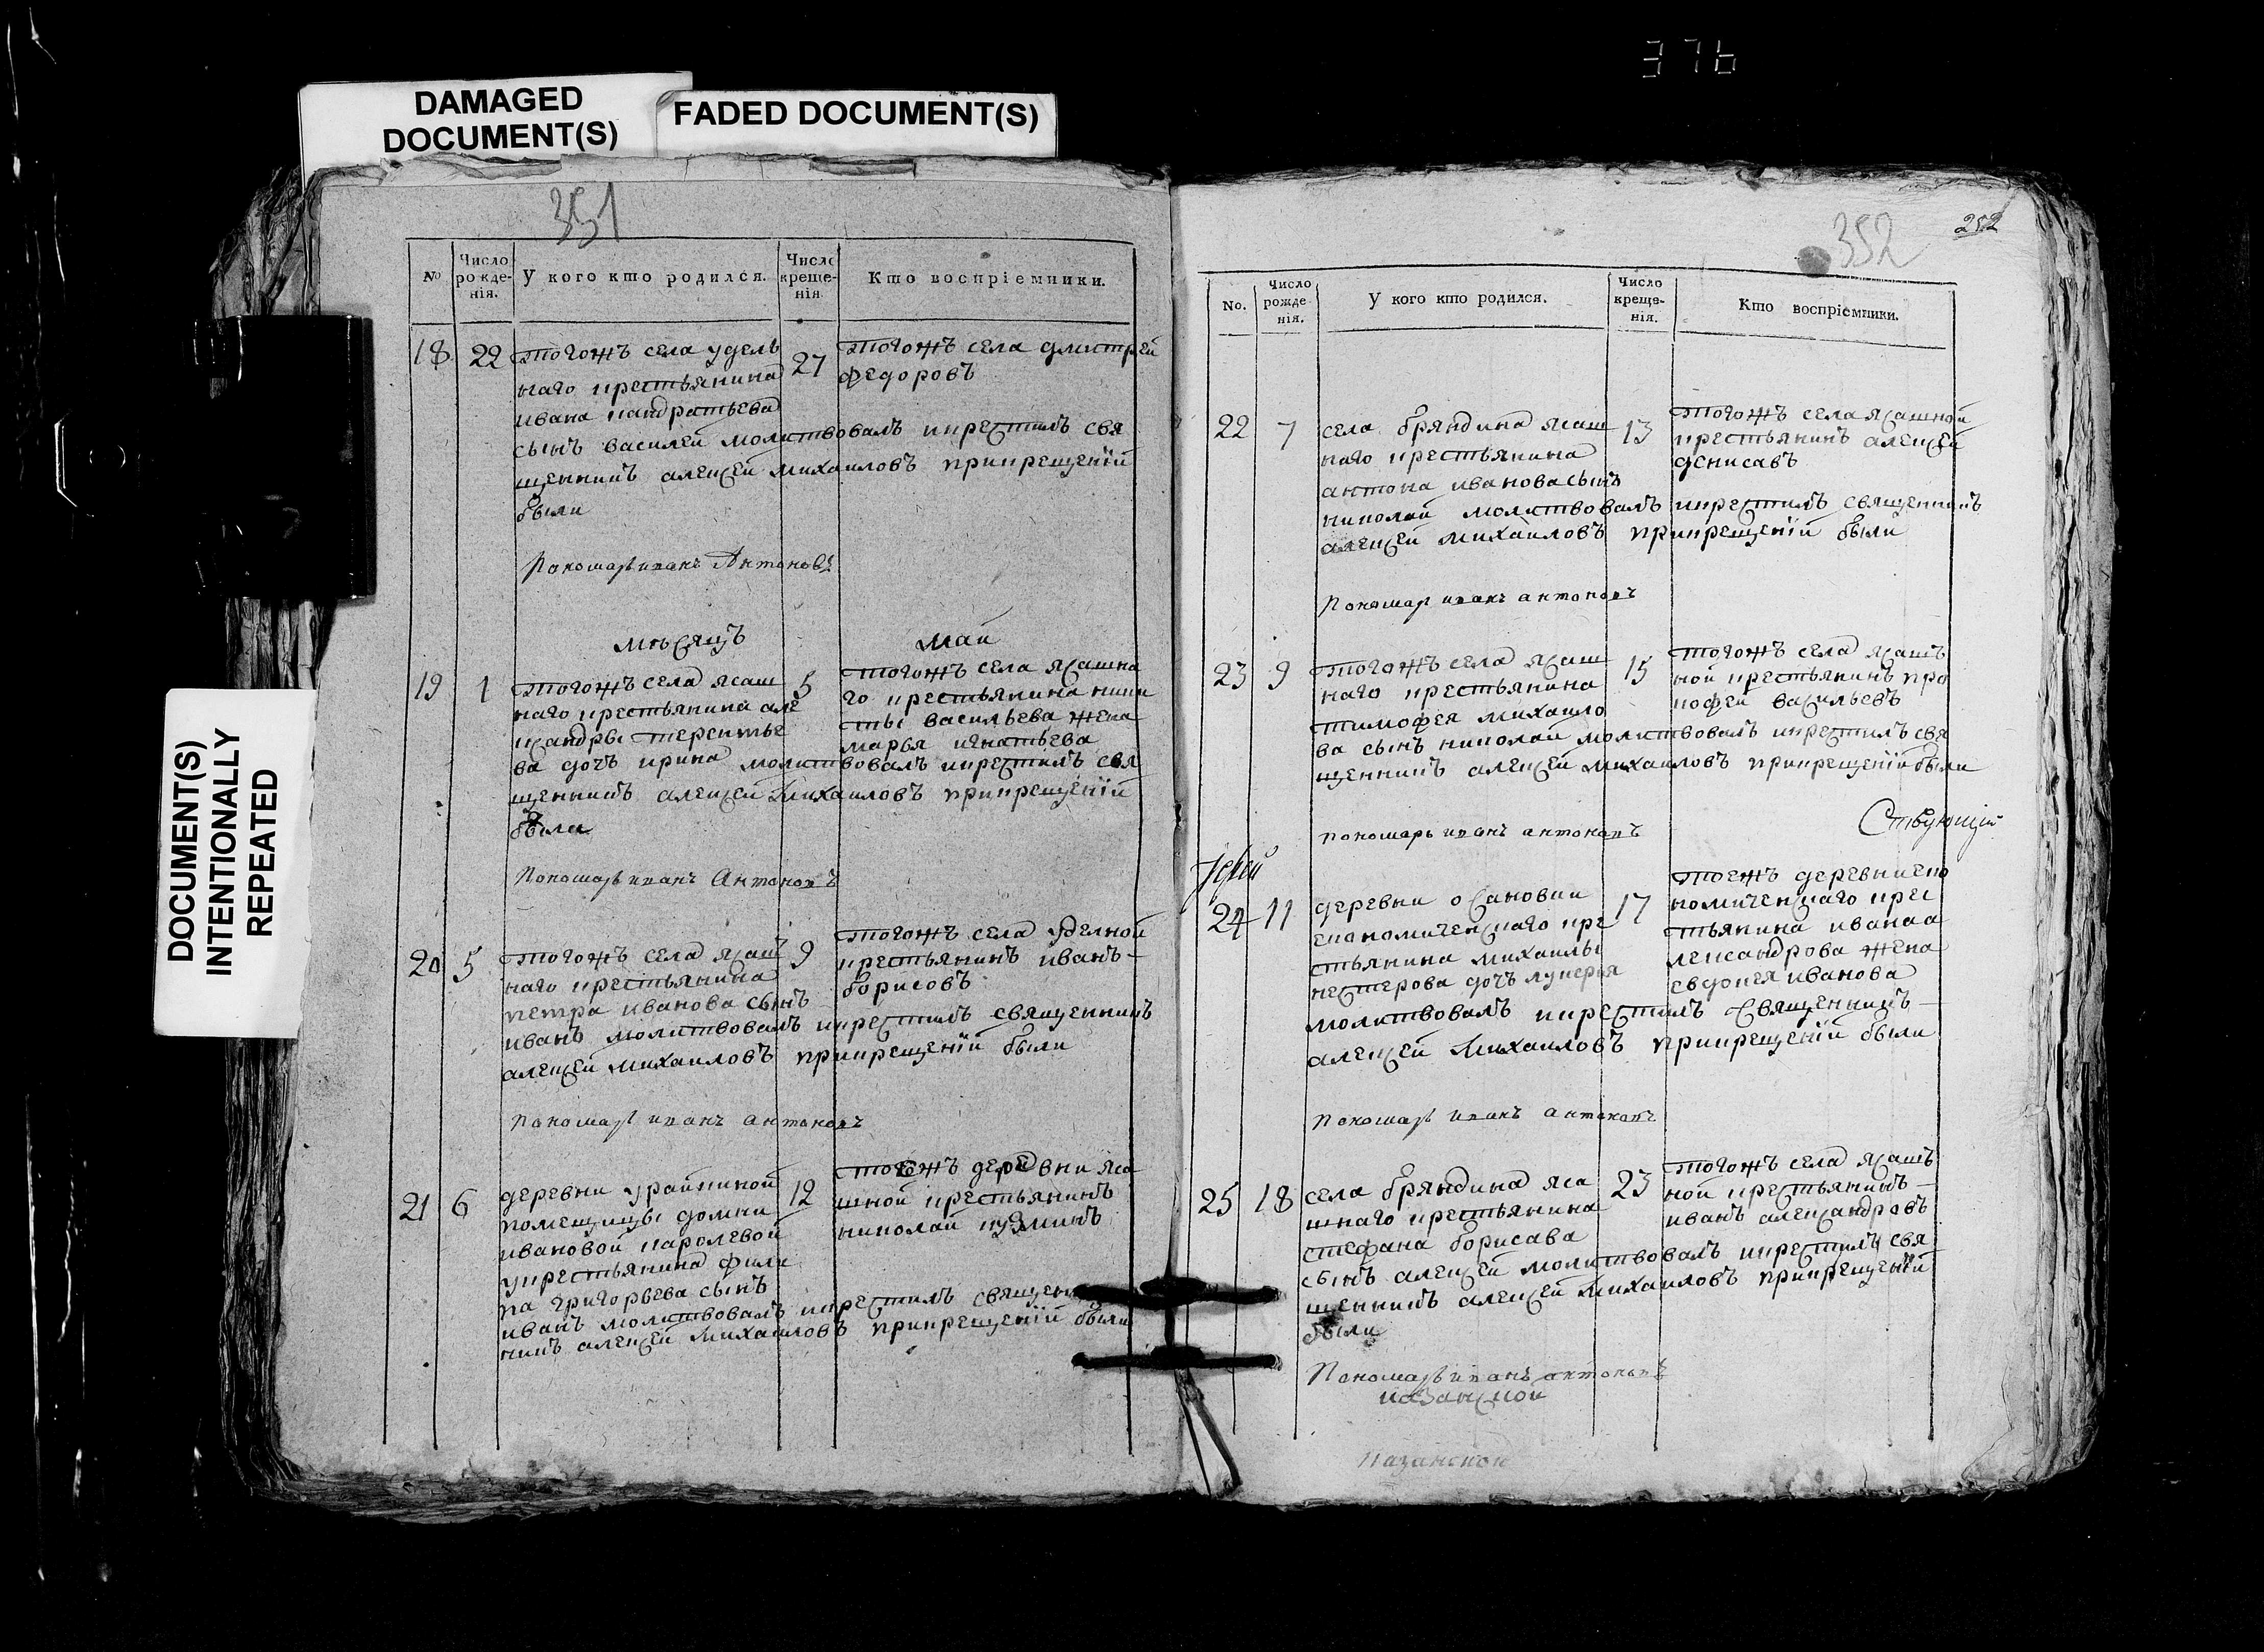 376
DAMAGED
DOCUMENT(S)
FADED DOCUMENT(S)
DOCUMENT(S)
INTENTIONALLY
REPEATED
351
No
Число рожденія.
У кого кто родился.
Число крещенія
Кто воспріемники.
18 22
тогожъ села удель
наго крестьянина
ивана кандратьева
сынъ василей молитвовалъ икрестилъ свя
щенникъ алексей михаиловъ прикрещеніи
были
27
тогожъ села дмитрей
федоровъ
Пономарь иванъ Антоновъ
мѣсяцъ май
19 1
тогожъ села ясаш
наго крестьянина але
ксандры терентье
ва дочь ирина молитвовалъ икрестилъ свя
щенникъ алексей михаиловъ прикрещеніи
были
5
тогожъ села ясашна
го крестьянина ники
ты васильева жена
марья игнатьева
Пономарь иванъ Антоновъ
20 5
тогожъ села ясаш
наго крестьянина
петра иванова сынъ
иванъ молитвовалъ икрестилъ священникъ
алексей михаиловъ прикрещеніи были
9
тогожъ села уделной
крестьянинъ иванъ
борисовъ
пономарь иванъ антоновъ
21 6
деревни урайкиной
помещицы домны
ивановой каролевой
укрестьянина фили
па григорьева сынъ
иванъ молитвовалъ икрестилъ священ
никъ алексей михаиловъ прикрещеніи были
12
тоежъ деревни яса
шной крестьянинъ
николай кузминъ
352
252
No.
Число рожденія.
У кого кто родился.
Число крещенія.
Кто воспріемники.
22 7
села бряндина ясаш
наго крестьянина
антона иванова сынъ
николай молитвовалъ икрестилъ священникъ
алексей михаиловъ прикрещеніи были
13
тогожъ села ясашной
крестьянинъ алексей
денисавъ
пономарь иванъ антоновъ
23 9
тогожъ села ясаш
наго крестьянина
тимофея михаило
ва сынъ николай молитвовалъ икрестилъ свя
щенникъ алексей михаиловъ прикрещеніи были
15
тогожъ села ясашъ
ной крестьянинъ про
кофей васильевъ
пономарь иванъ антоновъ
Ствующій
Іерей
24 11
деревни осановки
економическаго кре
стьянина михаилы
нестерова дочь лукерья
молитвовалъ икрестилъ священникъ
алексей михаиловъ прикрещеніи были
17
тоежъ деревни еко
номическаго крес
тьянина ивана а
лександрова жена
евдокея иванова
пономарь иванъ антоновъ
25 18
села бряндина яса
шнаго крестьянина
стефана борисава
сынъ алексей молитвовалъ икрестилъ свя
щенникъ алексей михаиловъ прикрещеніи
были
23
тогожъ села ясашъ
ной крестьянинъ
иванъ александровъ
Пономарь иванъ антоновъ
казанской
казанской